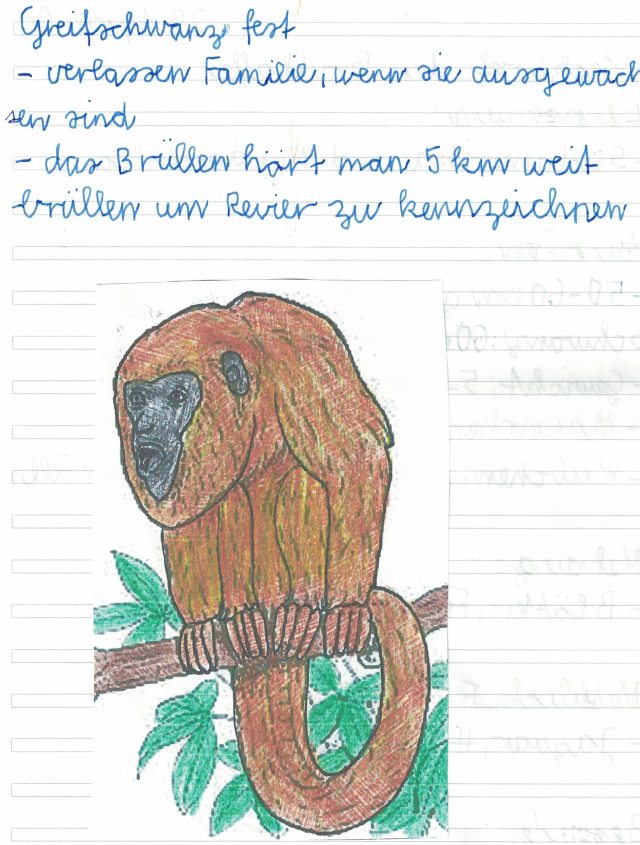 Greifschwanz fest
- verlassen Familie, wenn sie ausgewach
sen sind
- das Brüllen hört man 5 km weit
brüllen um Revier zu kennzeichnen